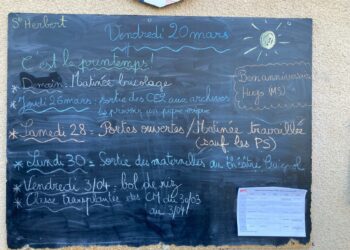 St Herbert
Vendredi 20 mars
C'est le printemps !
* Demain : Matinée bricolage
* Jeudi 26 mars : sortie des CE2 aux archives
Bon anniversaire
Hugo (MS)
* Samedi 28 = Portes ouvertes / Matinée travaillée
(sauf les PS)
* Lundi 30 = Sortie des maternelles au théâtre Guignol
* Vendredi 3/04 : bol de riz
* Classe transplantée des CM du 30/03
au 3/04